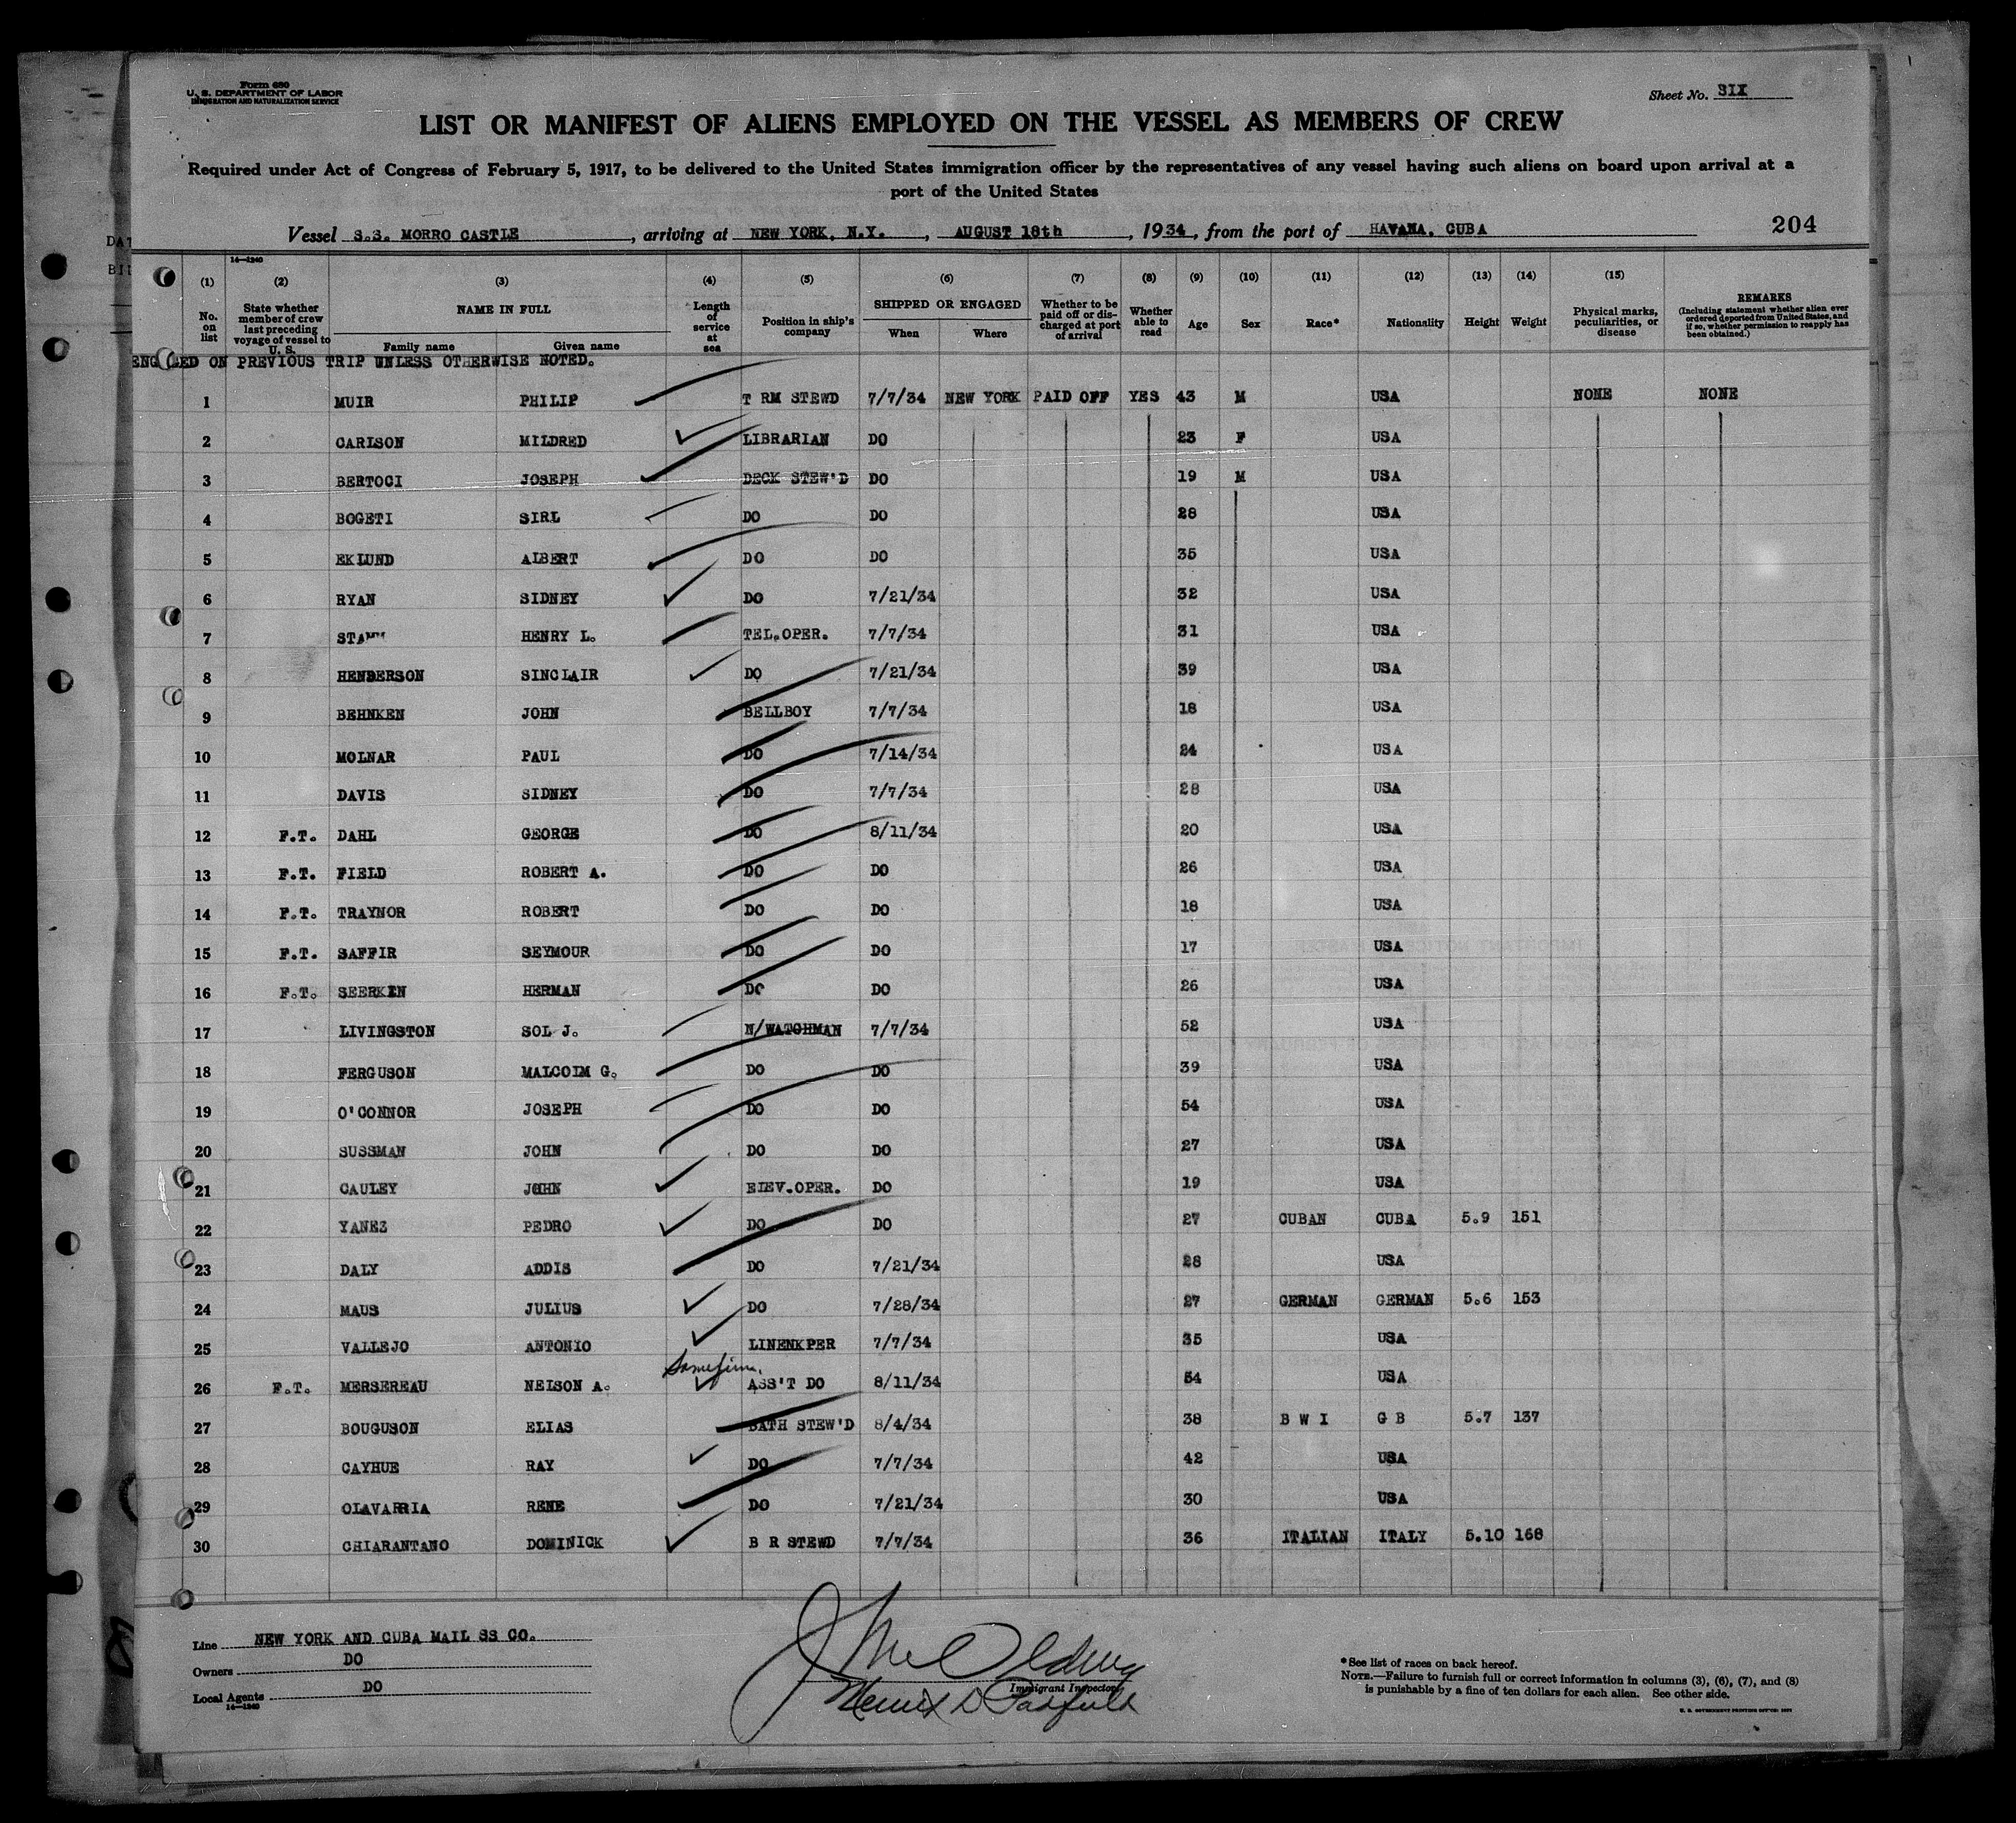 Form 680
U. S. DEPARTMENT OF LABOR
IMMIGRATION AND NATURALIZATION SERVICE
Sheet No. SIX
LIST OR MANIFEST OF ALIENS EMPLOYED ON THE VESSEL AS MEMBERS OF CREW
Required under Act of Congress of February 5, 1917, to be delivered to the United States immigration officer by the representatives of any vessel having such aliens on board upon arrival at a
port of the United States
Vessel S.S. MORRO CASTLE, arriving at NEW YORK, N.Y., AUGUST 18th, 1934, from the port of HAVANA, CUBA 204
14—1240
(1) (2) (3) (4) (5) (6) (7) (8) (9) (10) (11) (12) (13) (14) (15)
No. on list State whether member of crew last preceding voyage of vessel to U. S. NAME IN FULL Family name Given name Length of service at sea Position in ship's company SHIPPED OR ENGAGED When Where Whether to be paid off or discharged at port of arrival Whether able to read Age Sex Race* Nationality Height Weight Physical marks, peculiarities, or disease REMARKS (Including statement whether alien ever ordered deported from United States, and if so, whether permission to reapply has been obtained.)
ENGAGED ON PREVIOUS TRIP UNLESS OTHERWISE NOTED.
1 MUIR PHILIP T RM STEWD 7/7/34 NEW YORK PAID OFF YES 43 M USA NONE NONE
2 CARLSON MILDRED LIBRARIAN DO 23 F USA
3 BERTOCI JOSEPH DECK STEW'D DO 19 M USA
4 BOGETI SIRL DO DO 28 USA
5 EKLUND ALBERT DO DO 35 USA
6 RYAN SIDNEY DO 7/21/34 32 USA
7 HENRY L. TEL.OPER. 7/7/34 31 USA
8 HENDERSON SINCLAIR DO 7/21/34 39 USA
9 BEHNKEN JOHN BELLBOY 7/7/34 18 USA
10 MOLNAR PAUL DO 7/14/34 24 USA
11 DAVIS SIDNEY DO 7/7/34 28 USA
12 F.T. DAHL GEORGE DO 8/11/34 20 USA
13 F.T. FIELD ROBERT A. DO DO 26 USA
14 F.T. TRAYNOR ROBERT DO DO 18 USA
15 F.T. SAFFIR SEYMOUR DO DO 17 USA
16 F.T. SEERKEN HERMAN DO DO 26 USA
17 LIVINGSTON SOL J. N/WATCHMAN 7/7/34 52 USA
18 FERGUSON MALCOLM G. DO DO 39 USA
19 O'CONNOR JOSEPH DO DO 54 USA
20 SUSSMAN JOHN DO DO 27 USA
21 CAULEY JOHN ELEV.OPER. DO 19 USA
22 YANEZ PEDRO DO DO 27 CUBAN CUBA 5.9 151
23 DALY ADDIS DO 7/21/34 28 USA
24 MAUS JULIUS DO 7/28/34 27 GERMAN GERMAN 5.6 153
25 VALLEJO ANTONIO LINENKPER 7/7/34 35 USA
26 F.T. MERSEREAU NELSON A. ASS'T DO 8/11/34 54 USA
27 BOUGUSON ELIAS BATH STEW'D 8/4/34 38 B W I G B 5.7 137
28 CAYHUE RAY DO 7/7/34 42 USA
29 OLAVARRIA RENE DO 7/21/34 30 USA
30 CHIARANTANO DOMINICK B R STEWD 7/7/34 36 ITALIAN ITALY 5.10 168
Line NEW YORK AND CUBA MAIL SS CO.
Owners DO
Local Agents DO
14—1240
Immigrant Inspector
*See list of races on back hereof.
NOTE.—Failure to furnish full or correct information in columns (3), (6), (7), and (8)
is punishable by a fine of ten dollars for each alien. See other side.